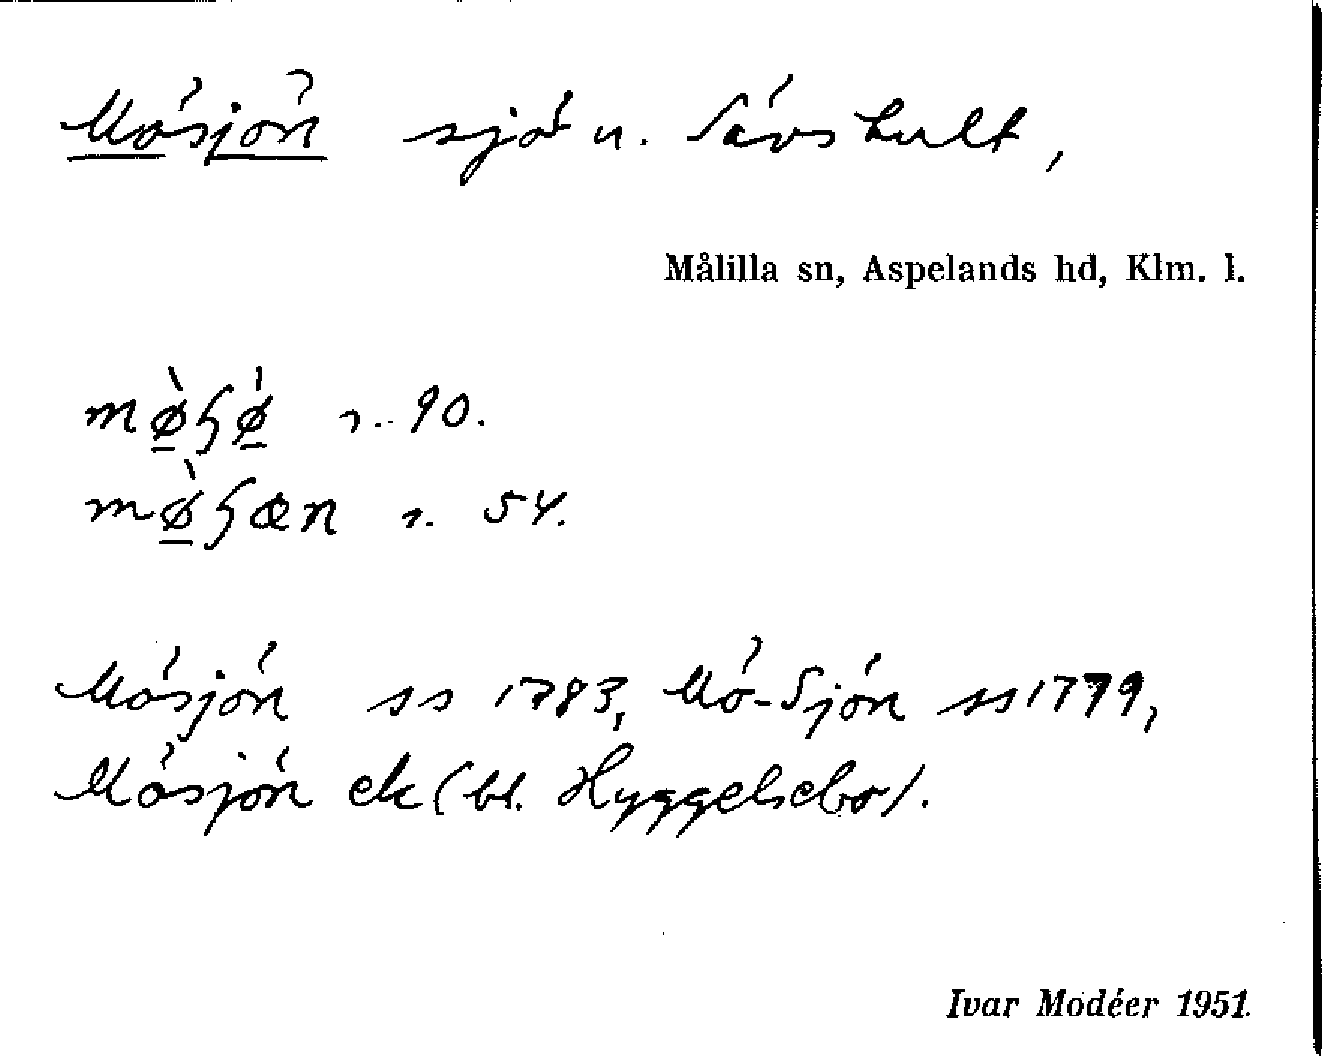 Mösjön sjö n. Sävshult,
Målilla sn, Aspelands hd, Klm. l.
mø̀ɧø̀ s. 90.
mø̀ɧœn s. 54.
Mösjön ss 1783, Mö-Sjön ss 1779,
Mösjön ek (bl. Hyggelsebo).
Ivar Modéer 1951.